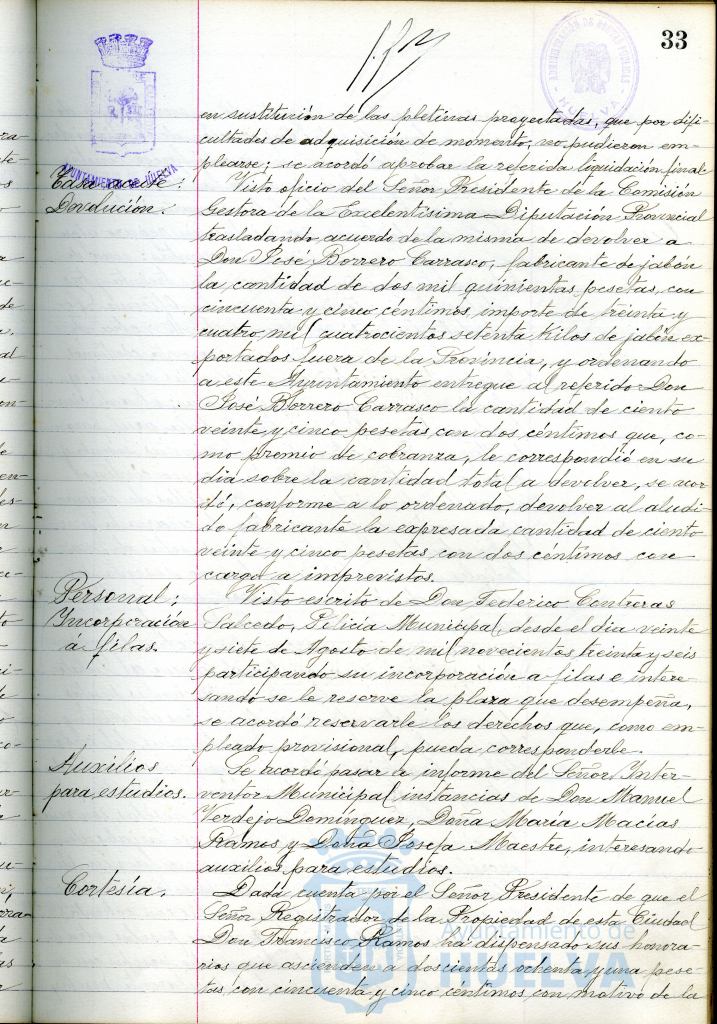 33
ADMINISTRACIÓN DE RENTAS PÚBLICAS
HUELVA
AYUNTAMIENTO DE HUELVA
en sustitución de las pletinas proyectadas, que por difi-
cultades de adquisición de momento, no pudieron em-
plearse; se acordó aprobar la referida liquidación final.
Tasa aceite:
Devolución.
Visto oficio del Señor Presidente de la Comisión
Gestora de la Excelentísima Diputación Provincial
trasladando acuerdo de la misma de devolver a
Don José Borrero Carrasco, fabricante de jabón
la cantidad de dos mil quinientas pesetas, con
cincuenta y cinco céntimos importe de treinta y
cuatro mil cuatrocientos setenta kilos de jabón ex-
portados fuera de la Provincia, y ordenando
a este Ayuntamiento entregue al referido Don
José Borrero Carrasco la cantidad de ciento
veinte y cinco pesetas con dos céntimos que, co-
mo premio de cobranza, le correspondió en su
dia sobre la cantidad total a devolver, se acor-
dó, conforme a lo ordenado, devolver al aludi-
do fabricante la expresada cantidad de ciento
veinte y cinco pesetas con dos céntimos con
cargo a imprevistos.
Personal:
Incorporación
á filas.
Visto escrito de Don Federico Contreras
Salcedo, Policía Municipal, desde el dia veinte
y siete de Agosto de mil novecientos treinta y seis
participando su incorporación a filas e intere-
sando se le reserve la plaza que desempeña,
se acordó reservarle los derechos que, como em-
pleado provisional, pueda corresponderle.
Auxilios
para estudios.
Se acordó pasar a informe del Señor Inter-
ventor Municipal instancias de Don Manuel
Verdejo Domínguez, Doña María Macías
Ramos y Doña Josefa Maestre, interesando
auxilios para estudios.
Cortesía.
Dada cuenta por el Señor Presidente de que el
Señor Registrador de la Propiedad de esta Ciudad
Don Francisco Ramos ha dispensado sus honora-
rios que ascienden a doscientas ochenta y una pese-
tas con cincuenta y cinco céntimos con motivo de la
Ayuntamiento de
HUELVA